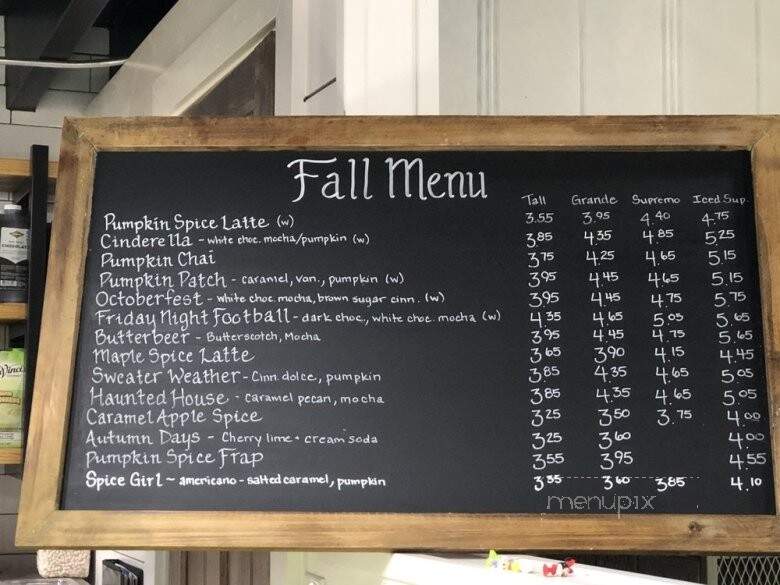 Fall Menu
Tall Grande Supremo Iced Sup.
Pumpkin Spice Latte (w) 3.55 3.95 4.40 4.75
Cinderella - white choc. mocha/pumpkin (w) 3.85 4.35 4.85 5.25
Pumpkin Chai 3.75 4.25 4.65 5.15
Pumpkin Patch - caramel, van., pumpkin (w) 3.95 4.45 4.65 5.15
Octoberfest - white choc. mocha, brown sugar cinn. (w) 3.95 4.45 4.75 5.75
Friday Night Football - dark choc., white choc. mocha (w) 4.35 4.65 5.05 5.65
Butterbeer - Butterscotch, Mocha 3.95 4.45 4.75 5.65
Maple Spice Latte 3.65 3.90 4.15 4.45
Sweater Weather - Cinn. dolce, pumpkin 3.85 4.35 4.65 5.05
Haunted House - Caramel pecan, mocha 3.85 4.35 4.65 5.05
Caramel Apple Spice 3.25 3.50 3.75 4.00
Autumn Days - Cherry lime + cream soda 3.25 3.60 4.00
Pumpkin Spice Frap 3.55 3.95 4.55
Spice Girl ~ americano - salted caramel, pumpkin 3.35 3.60 3.85 4.10
menupix